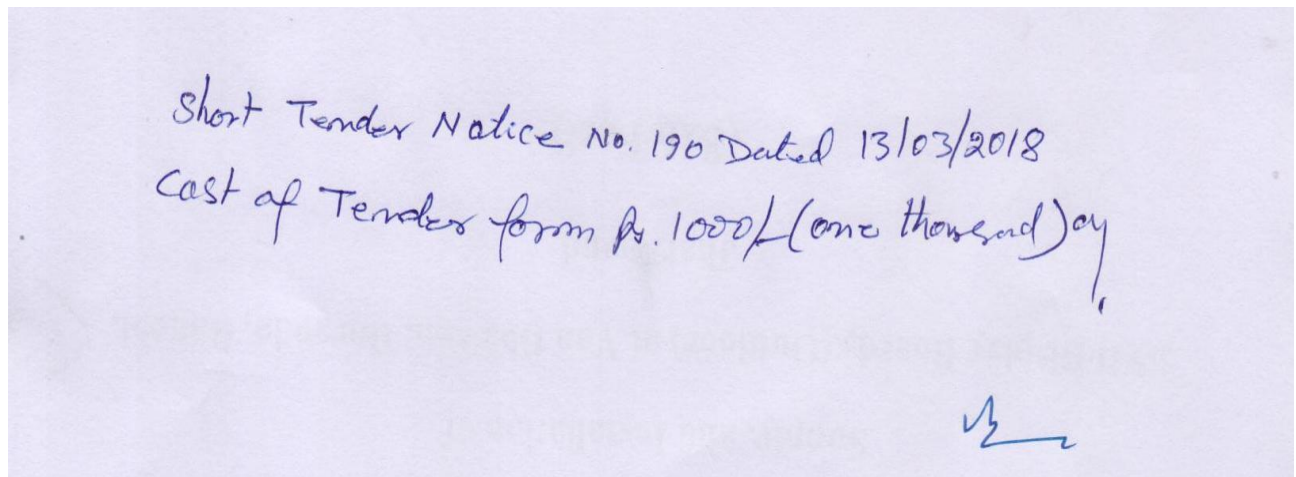 Short Tender Notice No. 190 Dated 13/03/2018
Cost of Tender form Rs. 1000/- (one thousand) only